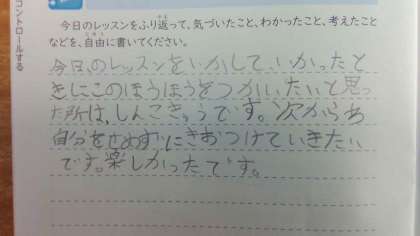 コントロールする
今日のレッスンをふり返って、気づいたこと、わかったこと、考えたこと
などを、自由に書いてください。
今日のレッスンをいかしていかったと
きにこのほうほうをつかいたいと思っ
た所は、しんこきゅうです。次からわ
自分をせめずにきおつけていきたい
です。楽しかったです。